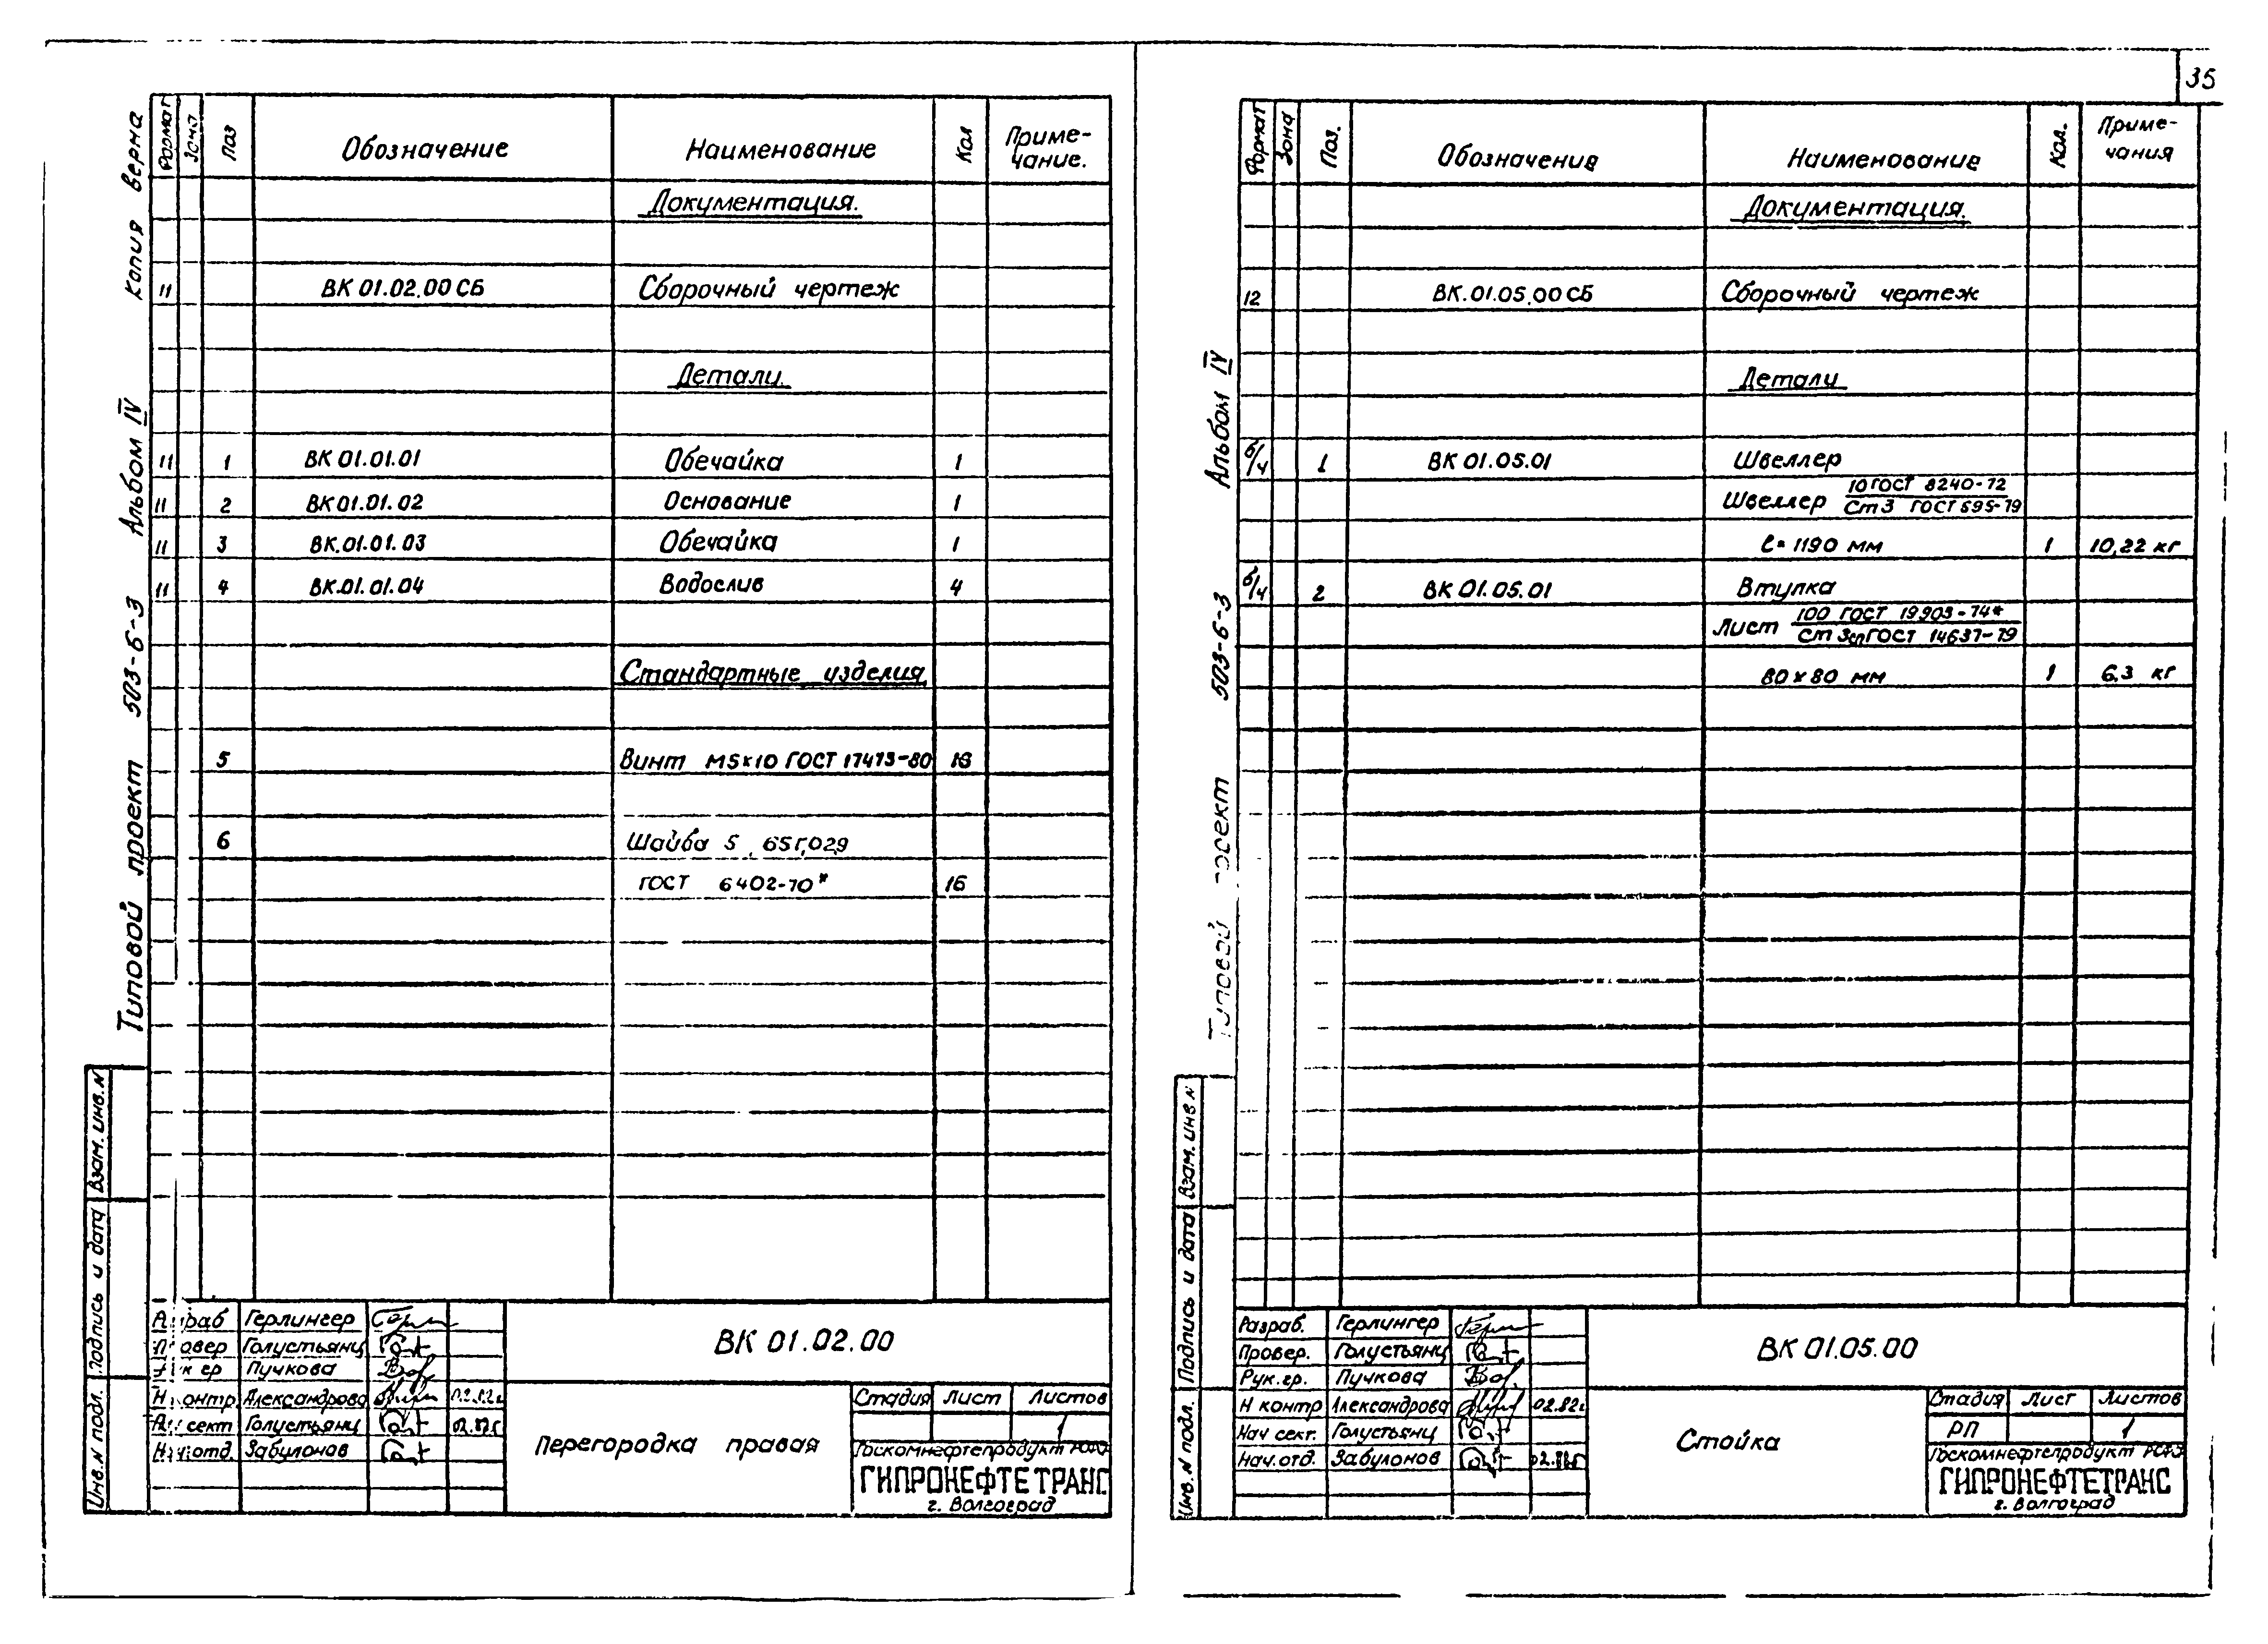 35
Копия верна
Альбом IV
Типовой проект 503-6-3
Формат Зона Поз Обозначение Наименование Кол Приме-
чание.
Документация.
11 ВК 01.02.00 СБ Сборочный чертеж
Детали.
11 1 ВК 01.01.01 Обечайка 1
11 2 ВК 01.01.02 Основание 1
11 3 ВК.01.01.03 Обечайка 1
11 4 ВК.01.01.04 Водослив 4
Стандартные изделия
5 Винт М5×10 ГОСТ 17473-80 16
6 Шайба 5. 65Г,029
ГОСТ 6402-70* 16
Взам. инв. N
Подпись и дата
Инв. N подл.
раб Герлингер
овер Голустьянц
к гр Пучкова
Н контр Александрова 02.82г
сект Голустьянц 02.82г
отд. Забулонов
ВК 01.02.00
Перегородка правая
Стадия Лист Листов
1
Госкомнефтепродукт РСФСР
ГИПРОНЕФТЕТРАНС
г. Волгоград
Альбом IV
Типовой проект 503-6-3
Формат Зона Поз. Обозначение Наименование Кол. Приме-
чания
Документация.
12 ВК.01.05.00 СБ Сборочный чертеж
Детали
б/ч 1 ВК 01.05.01 Швеллер
Швеллер 10 ГОСТ 8240-72
Ст3 ГОСТ 535-79
ℓ= 1190 мм 1 10,22 кг
б/ч 2 ВК 01.05.01 Втулка
Лист 100 ГОСТ 19903-74*
Ст 3сп ГОСТ 14637-79
80×80 мм 1 6.3 кг
Взам. инв N
Подпись и дата
Инв. N подл.
Разраб. Герлингер
Провер. Голустьянц
Рук. гр. Пучкова
Н контр Александрова 02.82г
Нач сект. Голустьянц
Нач. отд. Забулонов 02.82г
ВК 01.05.00
Стойка
Стадия Лист Листов
РП 1
Госкомнефтепродукт РСФСР
ГИПРОНЕФТЕТРАНС
г. Волгоград